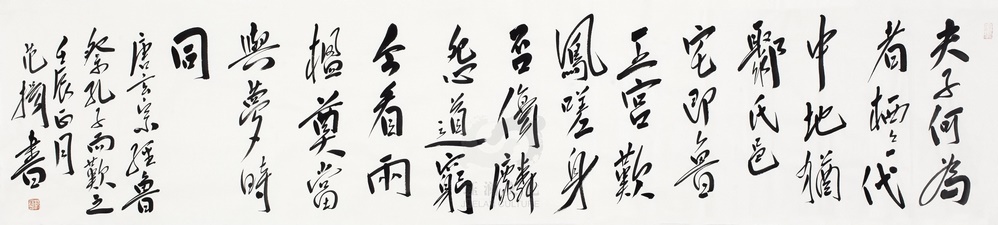 夫子何為
者栖々一代
中地猶
鄹氏邑
宅即魯
王宮歎
鳳嗟身
否傷麟
怨道窮
今看兩
楹奠當
與夢時
同
唐玄宗經魯
祭孔子而歎之
壬辰正月
范書